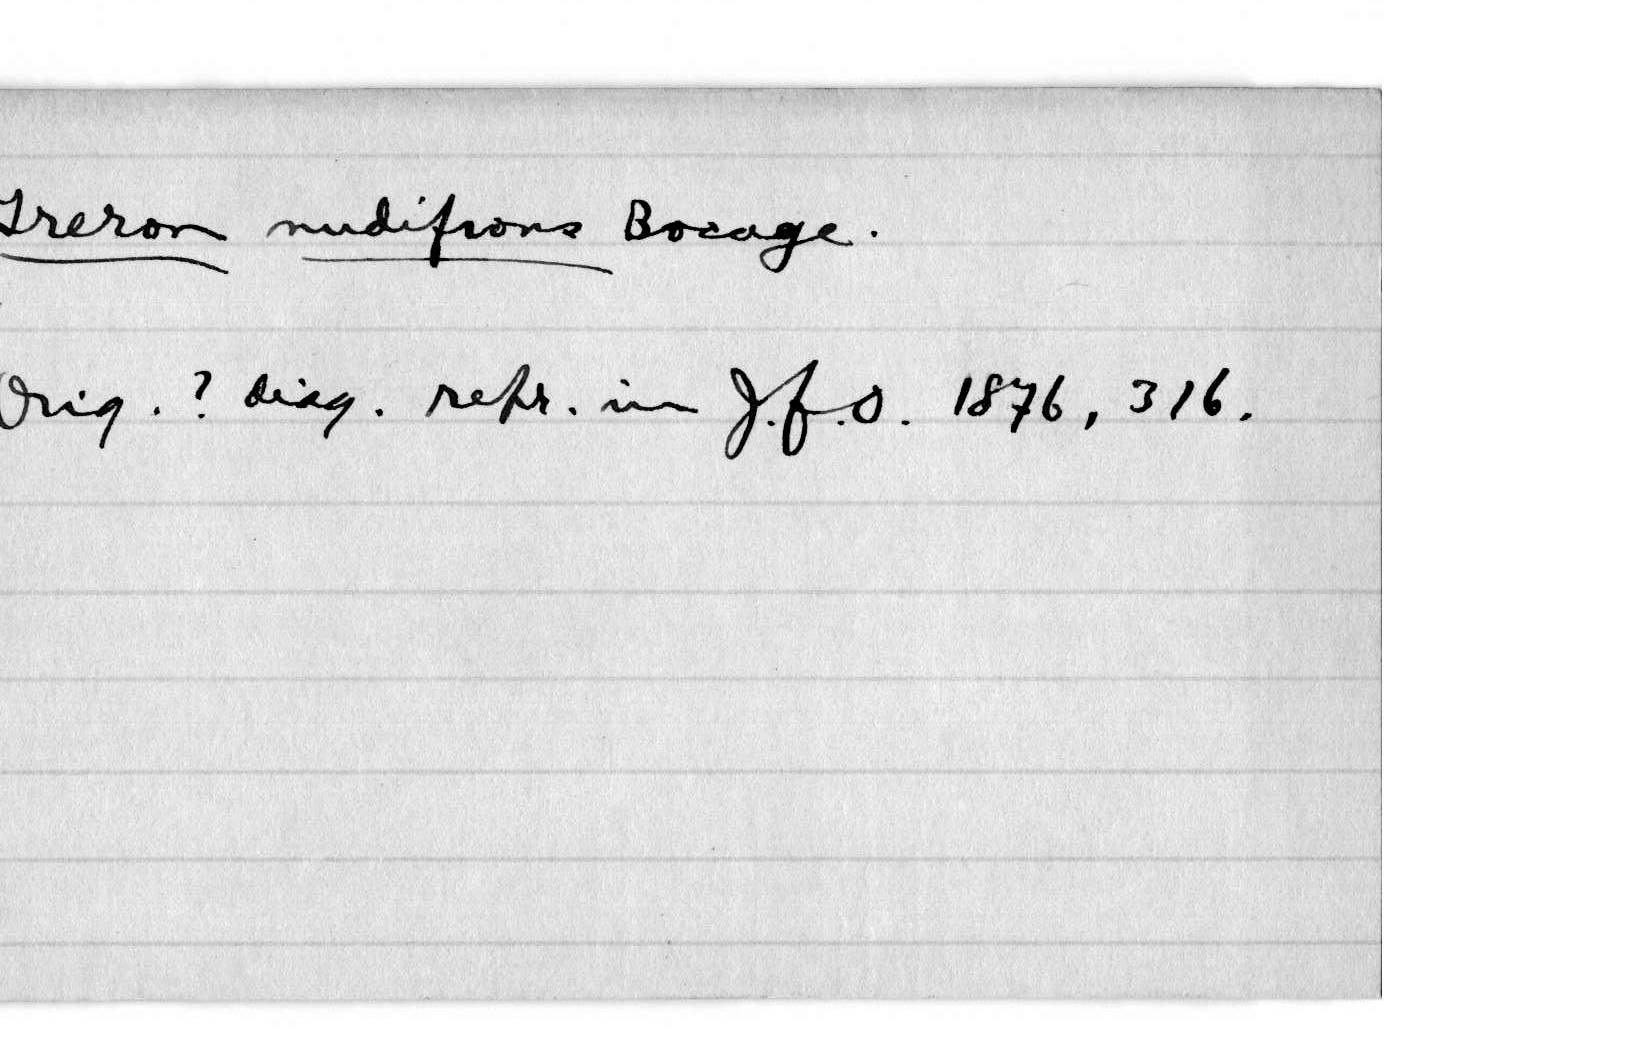 Treron nudifrons Bocage.
Orig. ? diag. repr. in J.f.O. 1876, 316.